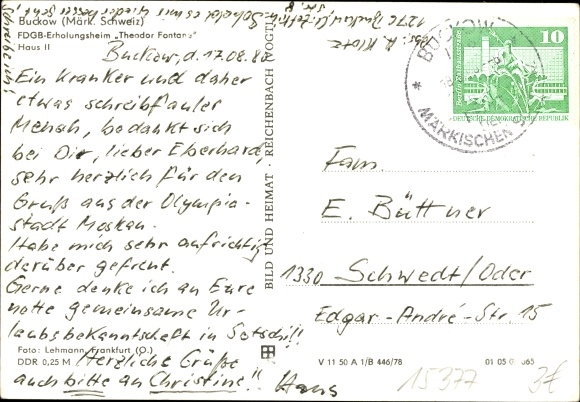 Buckow (Märk. Schweiz)
FDGB-Erholungsheim „Theodor Fontane"
Haus II
Buckow, d. 17.08.80
Ein kranker und daher
etwas schreibfauler
Mensch, bedankt sich
bei Dir, lieber Eberhard,
sehr herzlich für den
Gruß aus der Olympia-
stadt Moskau.
Habe mich sehr aufrichtig
darüber gefreut.
Gerne denke ich an Eure
nette gemeinsame Ur-
laubsbekanntschaft in Sotschi!!
Herzliche Grüße
auch bitte an Christine!! Hans
Foto: Lehmann, Frankfurt (O.)
DDR 0,25 M
BILD UND HEIMAT · REICHENBACH (VOGTL)
V 11 50 A 1/B 446/78
01 05 0 065
BUCKOW
MÄRKISCHEN S
10
DEUTSCHE DEMOKRATISCHE REPUBLIK
Fam.
E. Büttner
1330 Schwedt/Oder
Edgar-André-Str. 15
Abs.: H. Klotz
1276 Buckow
15377
3€